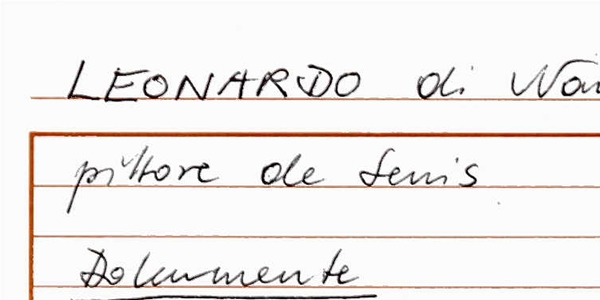 LEONARDO di
pittore de Senis
Dokumente